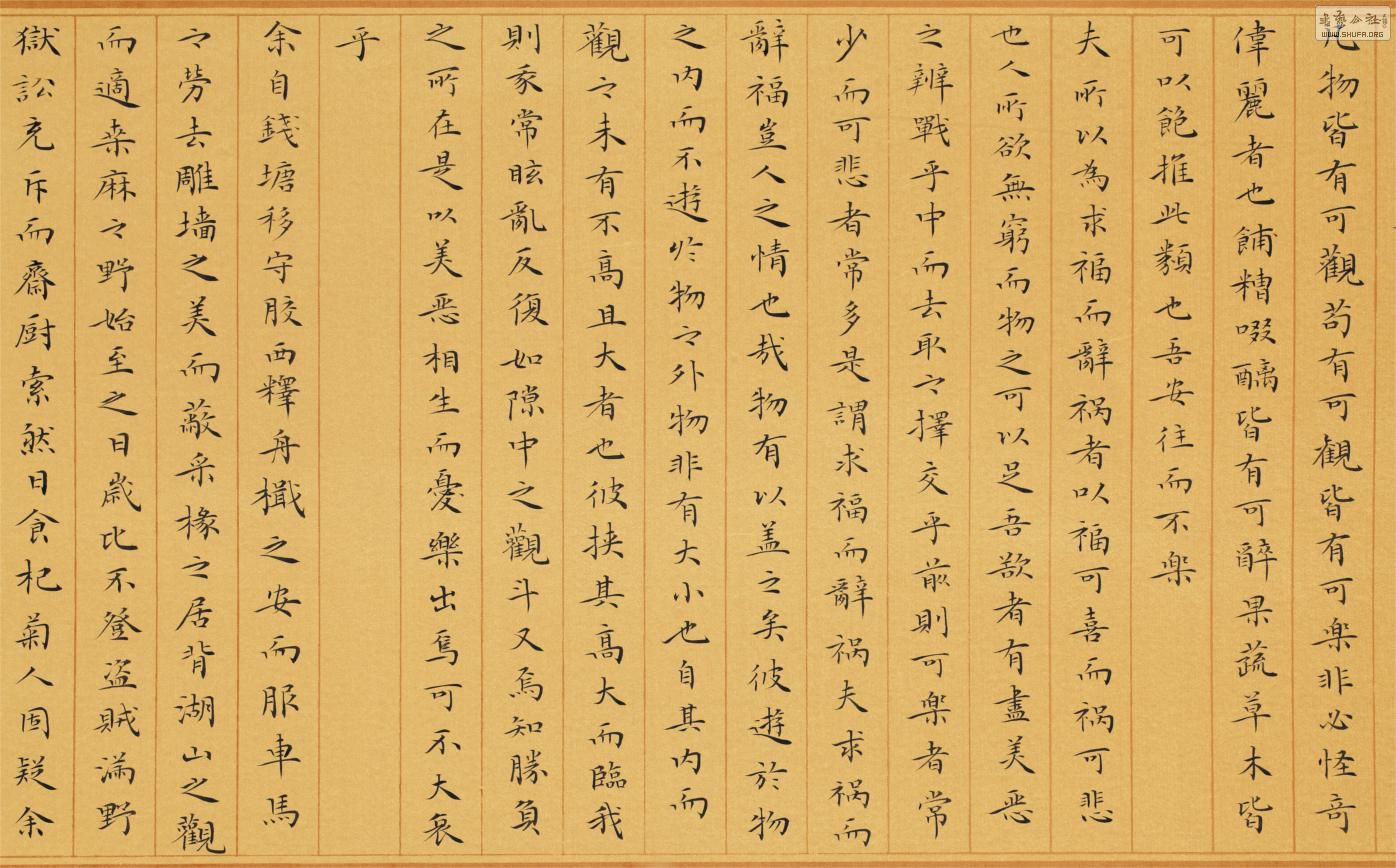 凡物皆有可觀苟有可観皆有可楽非必怪奇
偉麗者也餔糟啜醨皆有可醉果蔬草木皆
可以飽推此類也吾安往而不楽
夫所以為求福而辭祸者以福可喜而祸可悲
也人所欲無窮而物之可以足吾欲者有盡美惡
之辨戰乎中而去取之擇交乎前則可楽者常
少而可悲者常多是謂求福而辭祸夫求祸而
辭福豈人之情也哉物有以盖之矣彼遊於物
之内而不遊於物之外物非有大小也自其内而
觀之未有不高且大者也彼挟其高大而臨我
則我常眩亂反復如隙中之觀斗又烏知勝負
之所在是以美惡相生而憂樂出焉可不大哀
乎
余自錢塘移守胶西釋舟檝之安而服車馬
之勞去雕墙之美而蔽采椽之居背湖山之觀
而適桒麻之野始至之日歲比不登盗賊滿野
獄訟充斥而齋厨索然日食杞菊人固疑余
書法公社
WWW.SHUFA.ORG